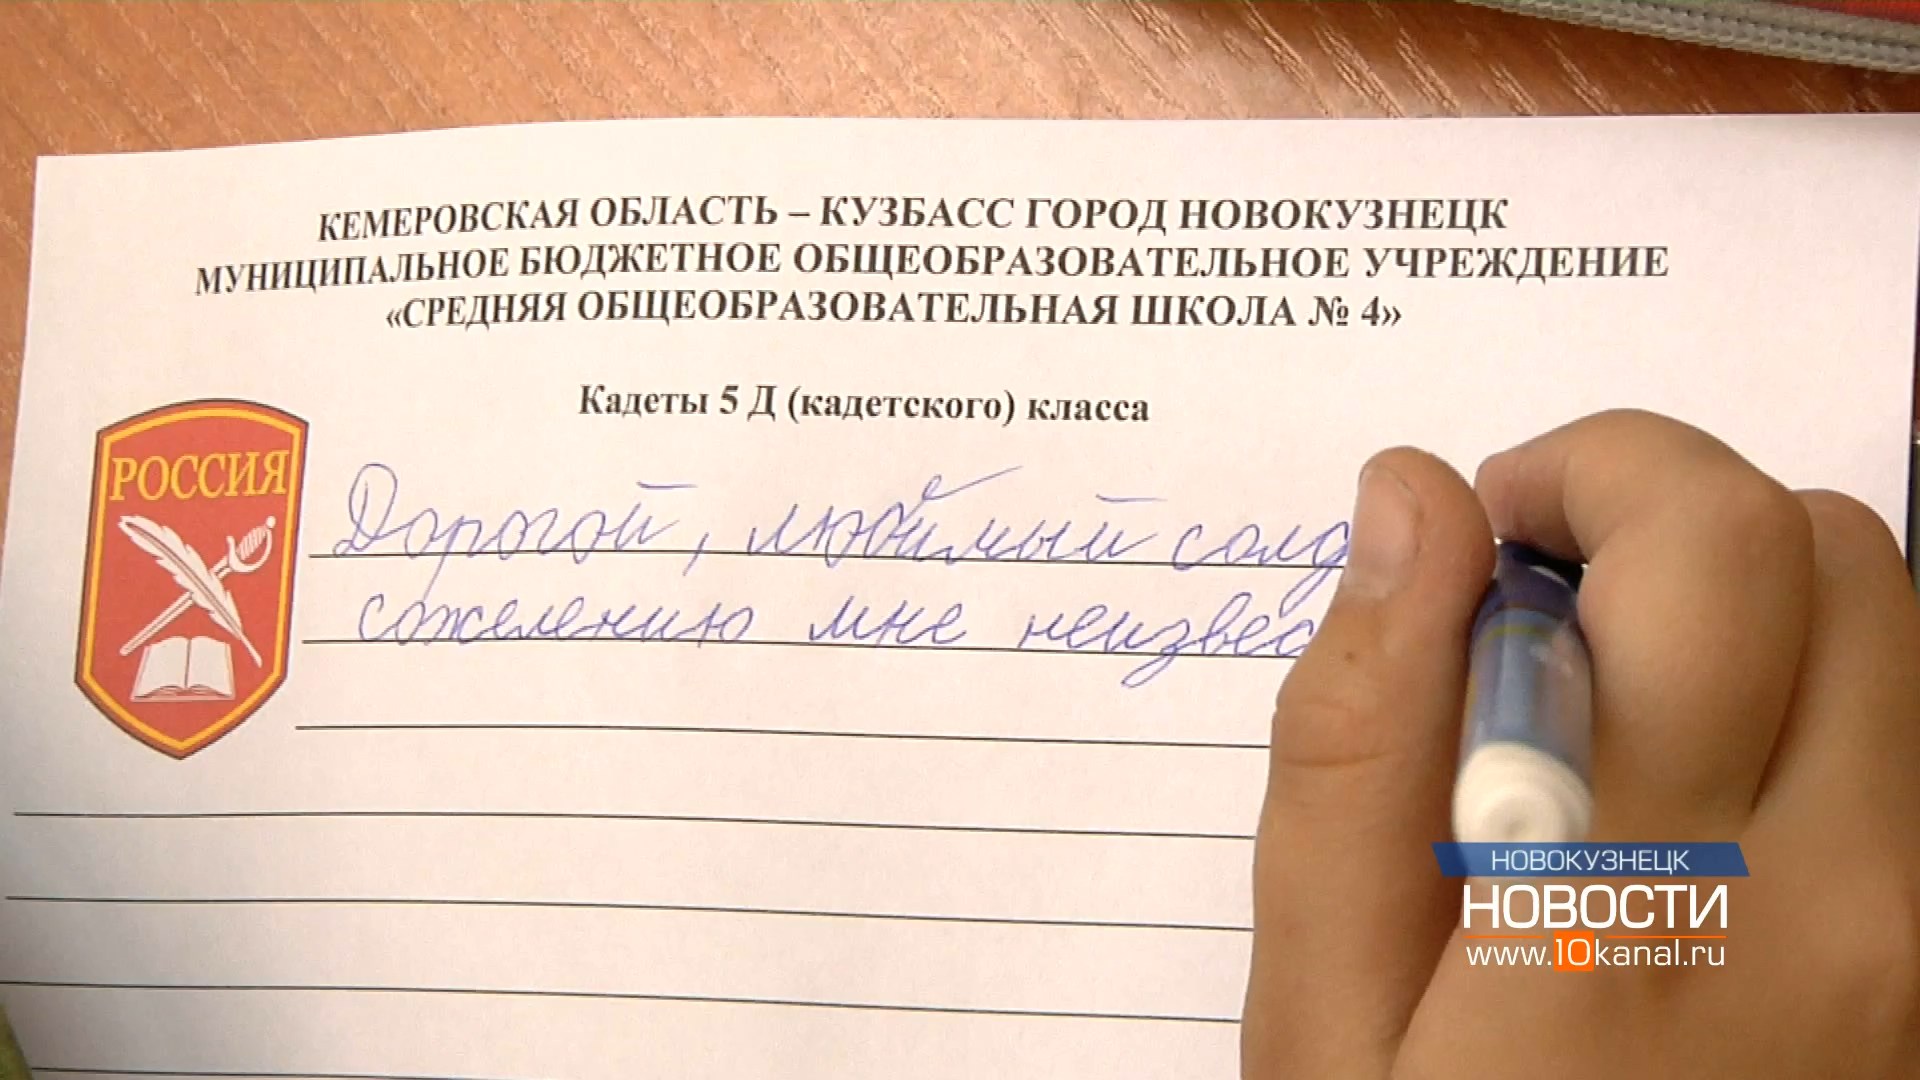 КЕМЕРОВСКАЯ ОБЛАСТЬ – КУЗБАСС ГОРОД НОВОКУЗНЕЦК
МУНИЦИПАЛЬНОЕ БЮДЖЕТНОЕ ОБЩЕОБРАЗОВАТЕЛЬНОЕ УЧРЕЖДЕНИЕ
«СРЕДНЯЯ ОБЩЕОБРАЗОВАТЕЛЬНАЯ ШКОЛА № 4»
Кадеты 5 Д (кадетского) класса
РОССИЯ
Дорогой, любимый солд
сожелению мне неизвес
НОВОКУЗНЕЦК
НОВОСТИ
www.10kanal.ru